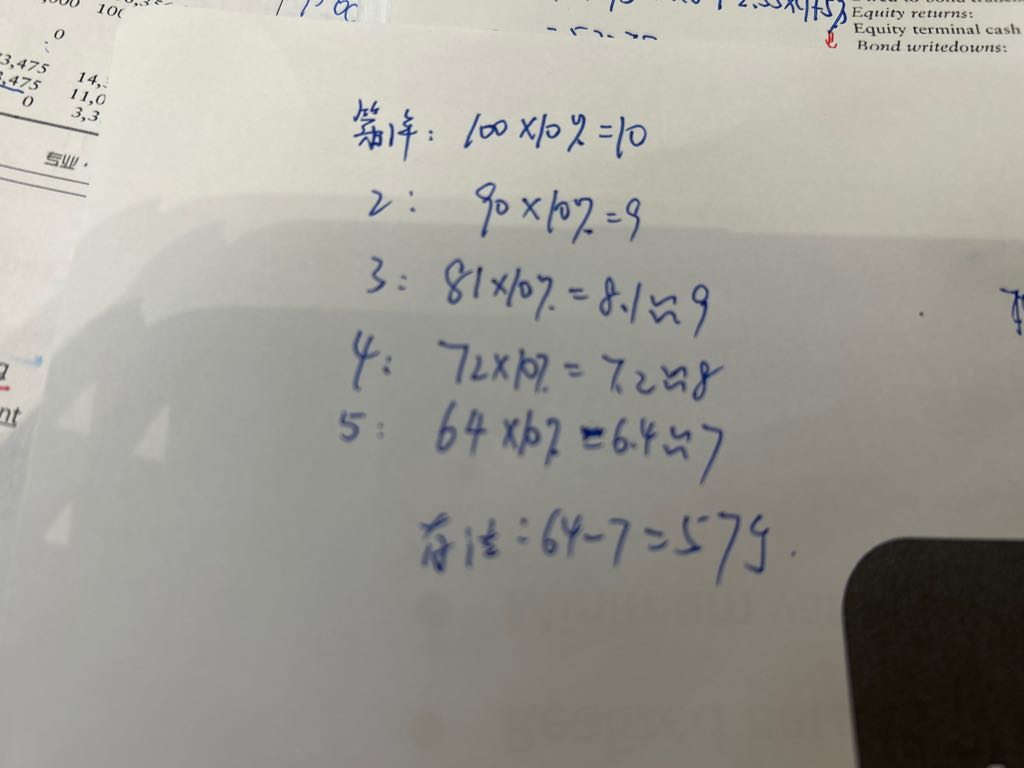 0
3,475
,475
0
14,
11,0
3,3
专业.
Equity returns:
Equity terminal cash
Bond writedowns:
第1年: 100×10%=10
2: 90×10%=9
3: 81×10%=8.1≈9
4: 72×10%=7.2≈8
5: 64×10%=6.4≈7
存活:64-7=57g.
nt